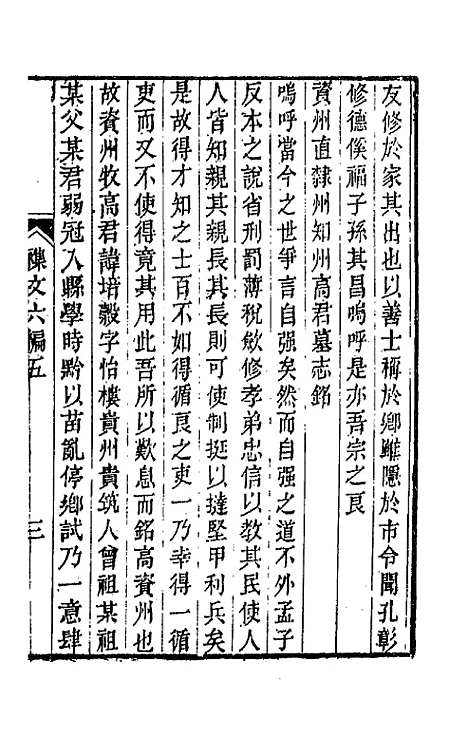 友修於家其出也以善士稱於鄉雖隱於市令聞孔彰
修德俟福子孫其昌嗚呼是亦吾宗之良
資州直隸州知州高君墓志銘
嗚呼當今之世爭言自强矣然而自强之道不外孟子
反本之說省刑罰薄稅斂修孝弟忠信以教其民使人
人皆知親其親長其長則可使制挺以撻堅甲利兵矣
是故得才知之士百不如得循良之吏一乃幸得一循
吏而又不使得竟其用此吾所以歎息而銘高資州也
故資州牧高君諱培穀字怡樓貴州貴筑人曾祖某祖
某父某君弱冠入縣學時黔以苗亂停鄉試乃一意肆
襍文六編五
三